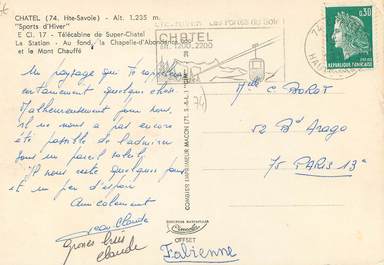 CHATEL (74. Hte-Savoie) - Alt. 1.235 m.
"Sports d'Hiver"
E Cl. 17 - Télécabine de Super-Chatel
La Station - Au fond, la Chapelle-d'Abondance
et le Mont Chauffé
CHATEL
alt. 1200-2200
0,30
REPUBLIQUE FRANÇAISE
Un paysage qui te rappelera
certainement quelque chose.
Malheureusement pour nous,
il ne nous a pas encore
été possible de l'admirer
sous un pareil soleil
Il nous reste quelques jours
et un peu d'espoir
Amicalement
Jean Claude
grosses bises
Claude
Fabienne
COMBIER IMPRIMEUR MACON (71. S.-&-L.)
74
Combier
OFFSET
Melle C BOROT
52 Bd Arago
75 PARIS 13e